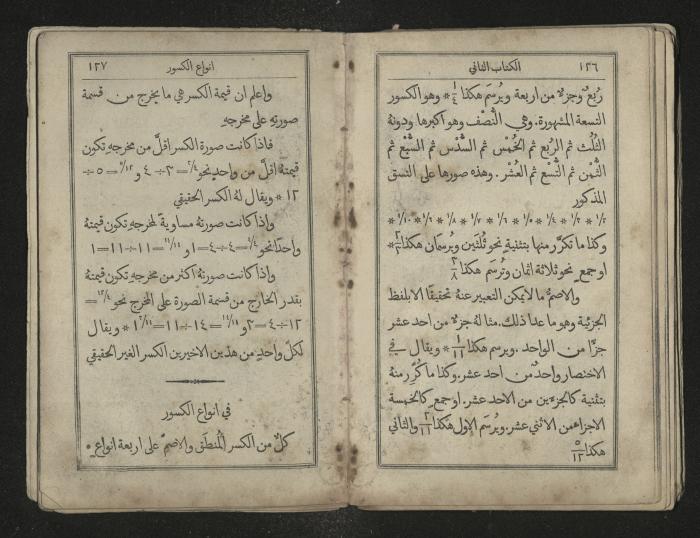 ١٢٦ الكتاب الثاني
رُبعٌ وجزءٌ من اربعة ويُرسَم هكذا ١/٤ * وهو الكسور
التسعة المشهورة. وهي النُّصْف وهو اكبرها ودونهُ
الثُلُث ثم الرُبع ثم الخُمْس ثم السُّدْس ثم السُّبْع ثم
الثُّمْن ثم التُّسْع ثم العُشْر. وهذه صورها على النسق
المذكور
١/٢ * ١/٣ * ١/٤ * ١/٥ * ١/٦ * ١/٧ * ١/٨ * ١/٩ * ١/١٠ *
وكذا ما تكرَّر منها بتثنية نحو ثُلثَين ويُرسمان هكذا ٢/٣ *
او جمعٍ نحو ثلاثة اثمان وتُرسَم هكذا ٣/٨
والاصمُّ ما لا يمكن التعبير عنهُ تحقيقًا الا بلفظ
الجزئية وهو ما عدا ذلك. مثالهُ جزءٌ من احد عشر
جزءًا من الواحد. ويرسم هكذا ١/١١ * ويقال في
الاختصار واحدٌ من احد عشر. وكذا ما كُرِّر منهُ
بتثنية كالجزءَين من الاحد عشر. او جمعٍ كالخمسة
الاجزاء من الاثني عشر. ويُرسَم الاول هكذا ٢/١١ والثاني
هكذا ٥/١٢
انواع الكسور ١٢٧
واعلم ان قيمة الكسر هي ما يخرج من قسمة
صورتهِ على مخرجهِ
فاذا كانت صورة الكسر اقلَّ من مخرجهِ تكون
قيمتهُ اقلَّ من واحدٍ نحو ٣/٤ = ٣ ÷ ٤ و ٥/١٢ = ٥ ÷
١٢ * ويقال لهُ الكسر الحقيقي
واذا كانت صورتهُ مساويةً لمخرجهِ تكون قيمتهُ
واحدًا نحو ٤/٤ = ٤ ÷ ٤ = ١ و ١١/١١ = ١١ ÷ ١١ = ١
واذا كانت صورتهُ اكثر من مخرجهِ تكون قيمتهُ
بقدر الخارج من قسمة الصورة على المخرج نحو ١٢/٤ =
١٢ ÷ ٤ = ٣ و ١٤/١١ = ١٤ ÷ ١١ = ١ ٣/١١ * ويقال
لكلّ واحدٍ من هذين الاخيرين الكسر الغير الحقيقي
في انواع الكسور
كلٌّ من الكسر المُنطَق والاصمّ على اربعة انواعٍ *